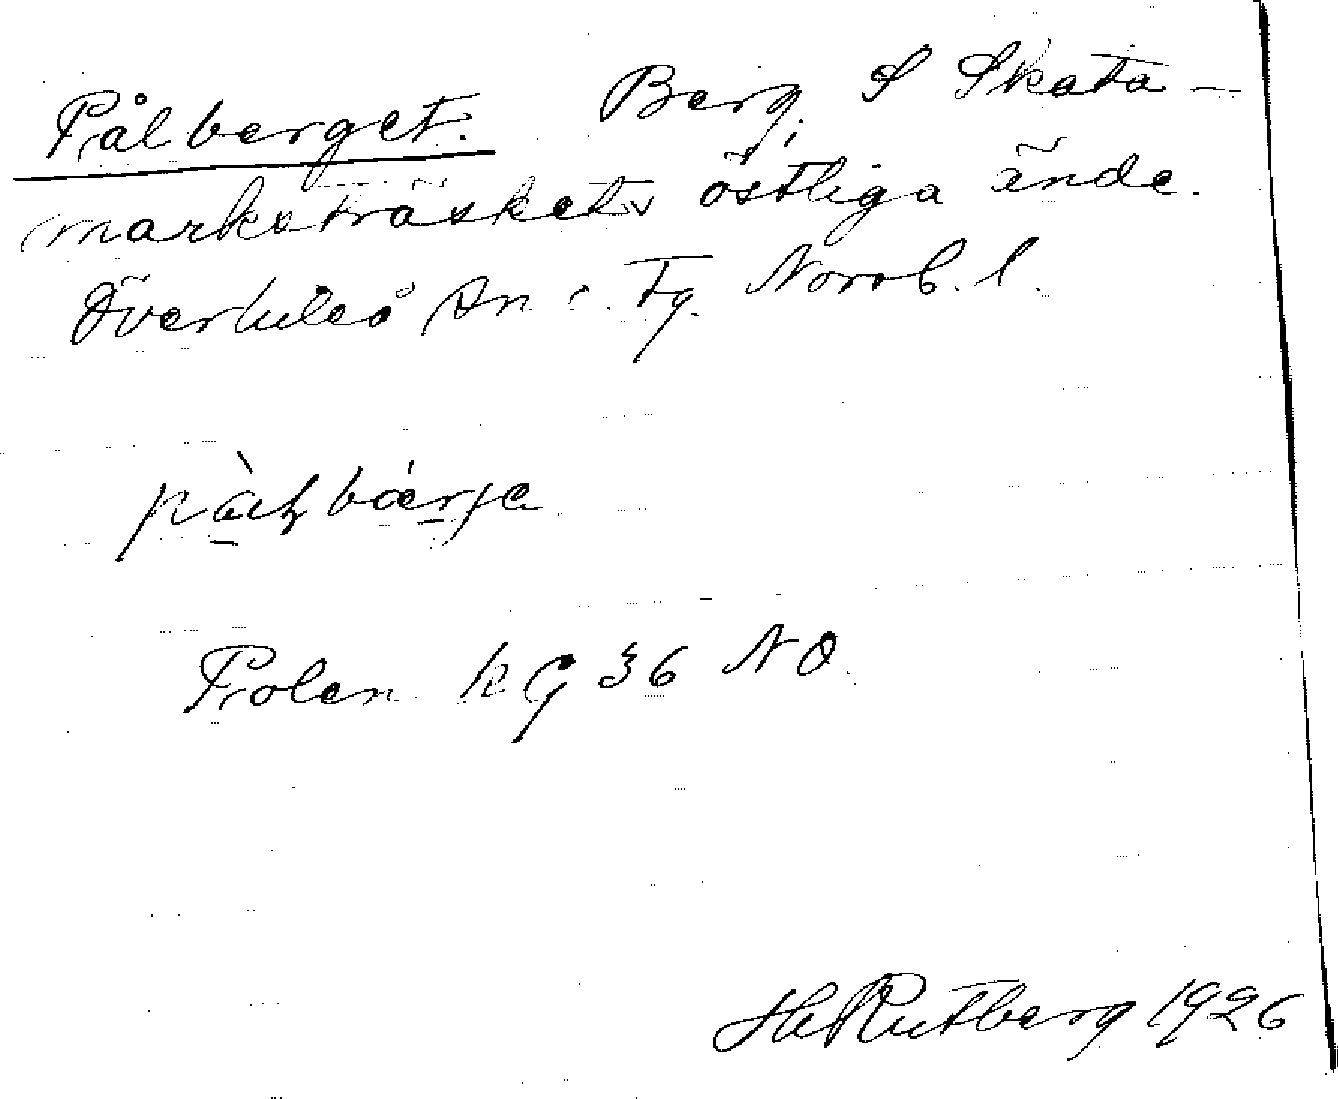 Pålberget. Berg, S Skata-
marksträskets östliga ände.
Överluleå sn. Norrb. l.
Polen kg 36 NO.
H Rutberg 1926